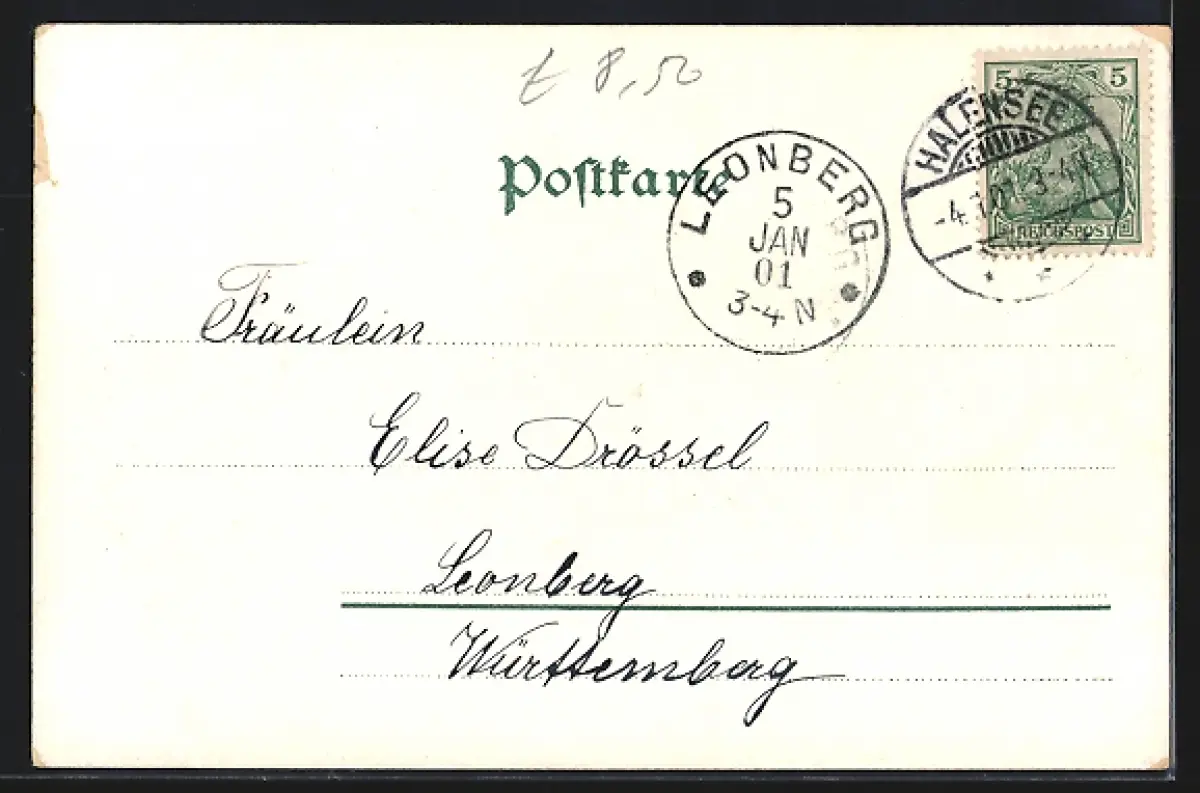 t 8,50
5 5
HALENSEE
-4.1.01. 3-4N
REICHSPOST
Poſtkarte
LEONBERG
5
JAN
01
3-4 N
Fräulein
Elise Drössel
Leonberg
Württemberg